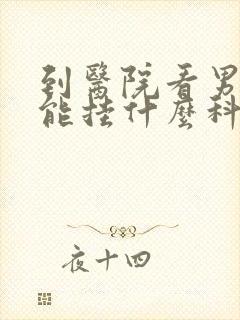 到醫院看男
能挂什麽科
夜十四